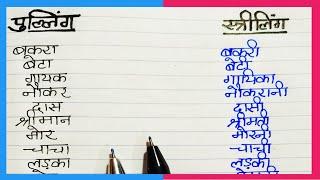 पुल्लिंग स्त्रीलिंग
बकरा बकरी
बेटा बेटी
गायक गायिका
नौकर नौकरानी
दास दासी
श्रीमान श्रीमती
मोर मोरनी
चाचा चाची
लड़का लड़की